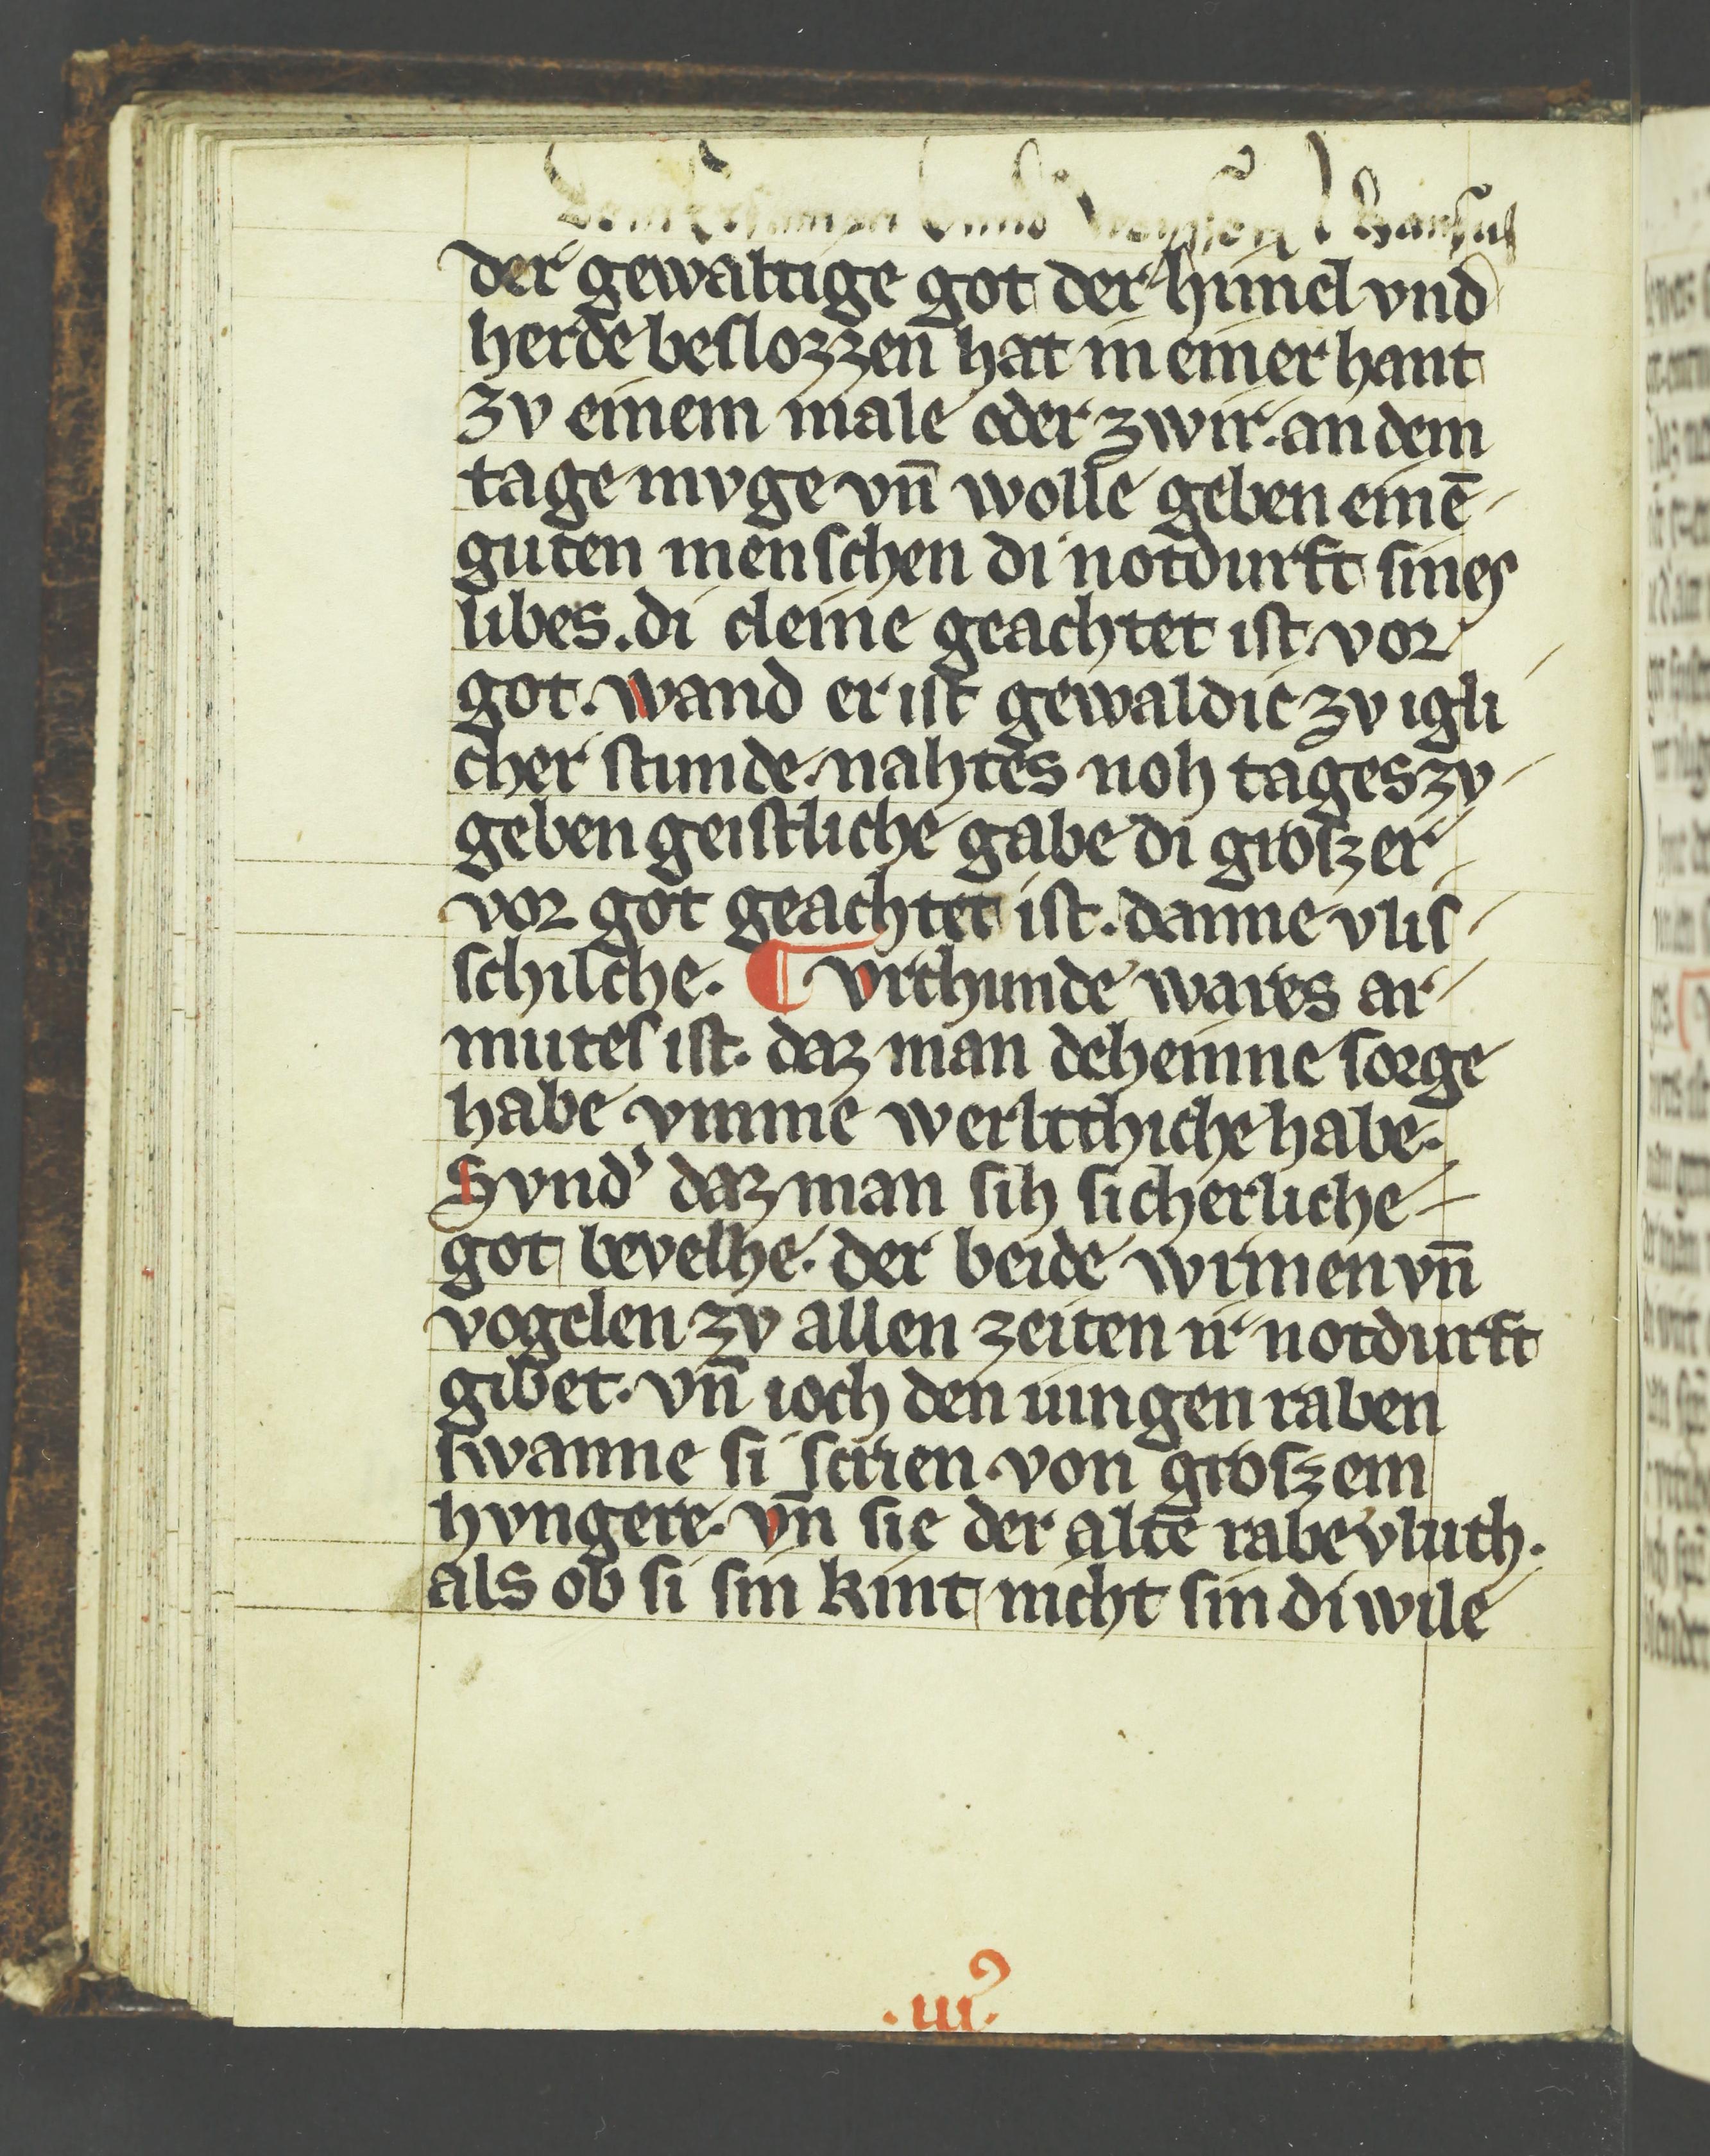 der gewaltige got der himel vnd
herde beslozzen hat in einer hant
zv einem male oder zwir. an dem
tage mvge vn̄ wolle geben einē
guten menschen di notdurft sines
libes. di cleine geachtet ist. vor
got. wand er ist gewaldic zv igli
cher stunde. nahtes noh tages zv
geben geistliche gabe di groszer
vor got geachtet ist. danne vlis
schilche. ¶ vrchunde wares ar
mutes ist. daz man deheinne sorge
habe vmme werltthiche habe.
Svnd' daz man sih sicherliche
got bevelhe. der beide wrmen vn̄
vogelen zv allen zeiten ir notdurft
gibet. vn̄ ioch den iungen raben
swanne si scrien. von groszem
hvngere. vn̄ sie der alte rabe vluth.
als ob si sin kint nicht sin di wile
.iii.